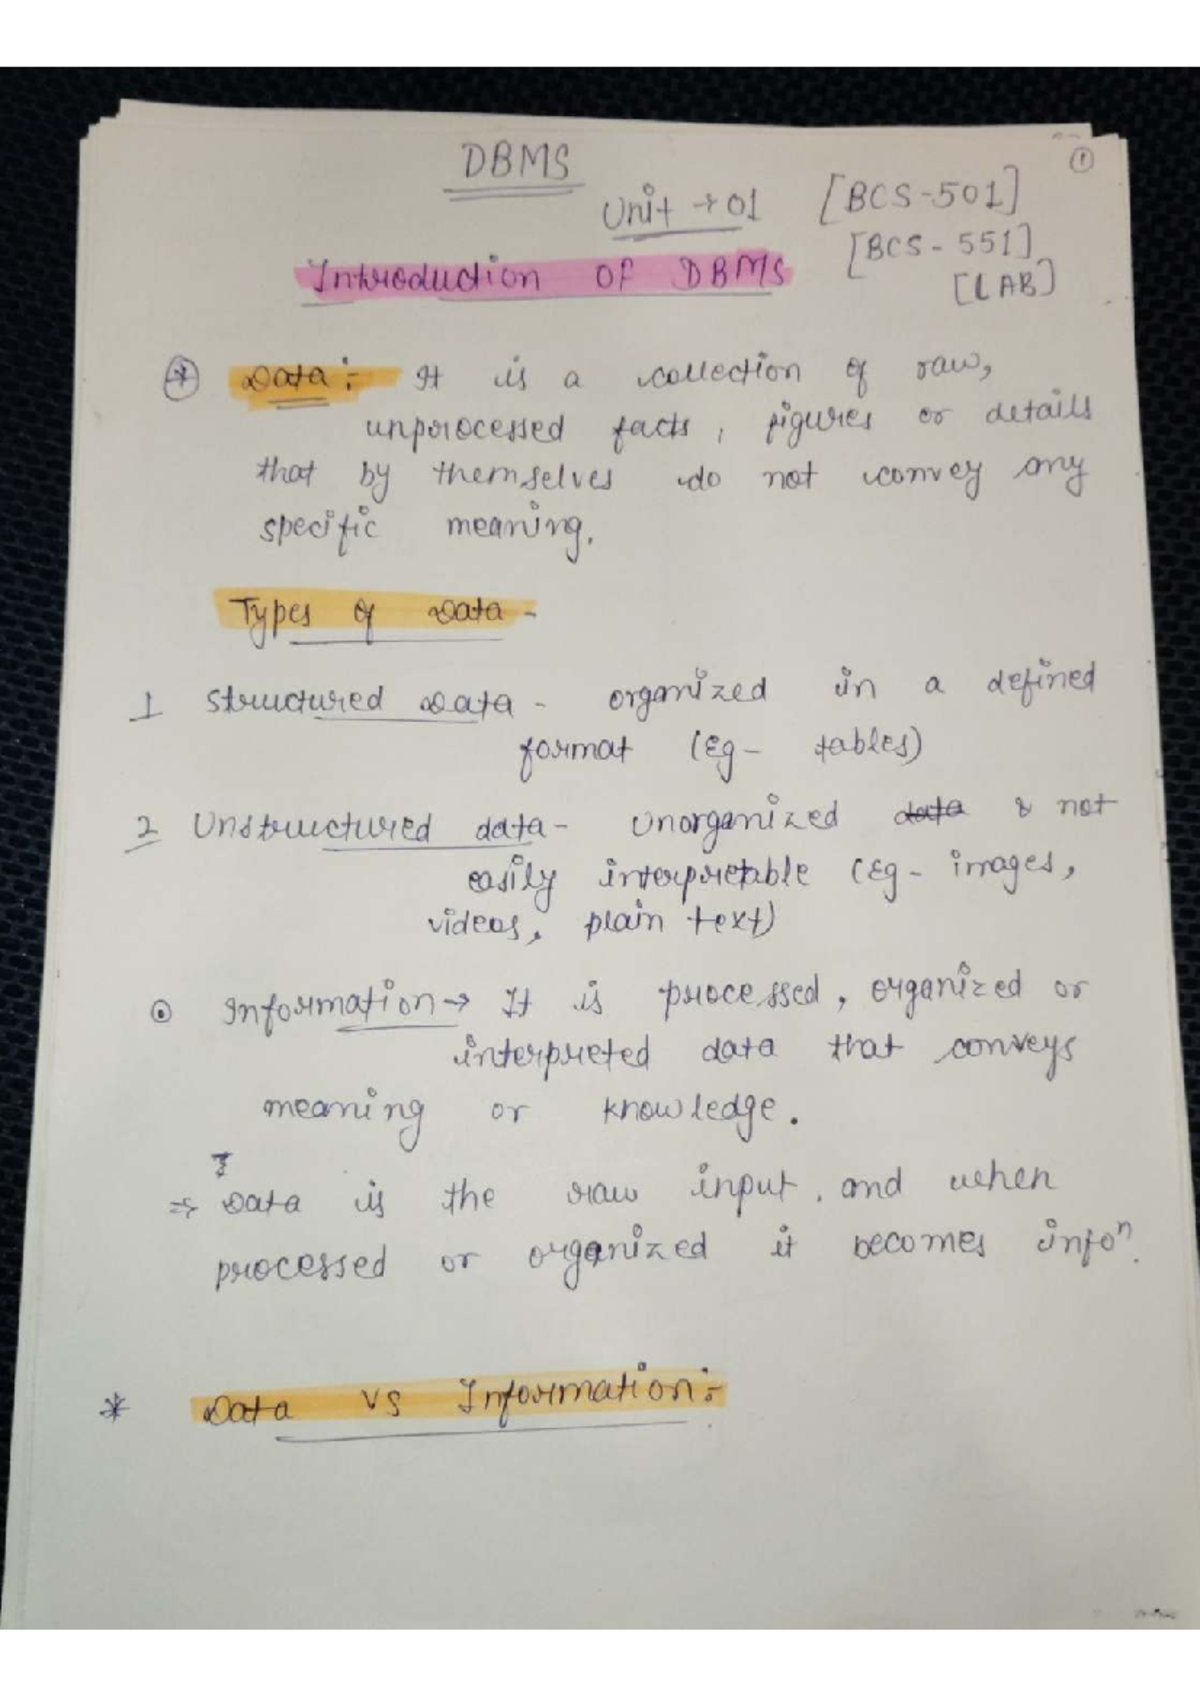 ①
DBMS
Unit → 01 [BCS-501]
[BCS-551]
[LAB]
Introduction OF DBMS
* Data :- It is a collection of raw,
unprocessed facts, figures or details
that by themselves do not convey any
specific meaning.
Types of Data -
1 Structured Data - organized in a defined
format (Eg - tables)
2 Unstructured data - Unorganized data & not
easily interpretable (Eg - images,
videos, plain text)
⊙ Information → It is processed, organized or
interpreted data that conveys
meaning or knowledge.
⇒ Data is the raw input, and when
processed or organized it becomes infoⁿ.
* Data VS Information :-